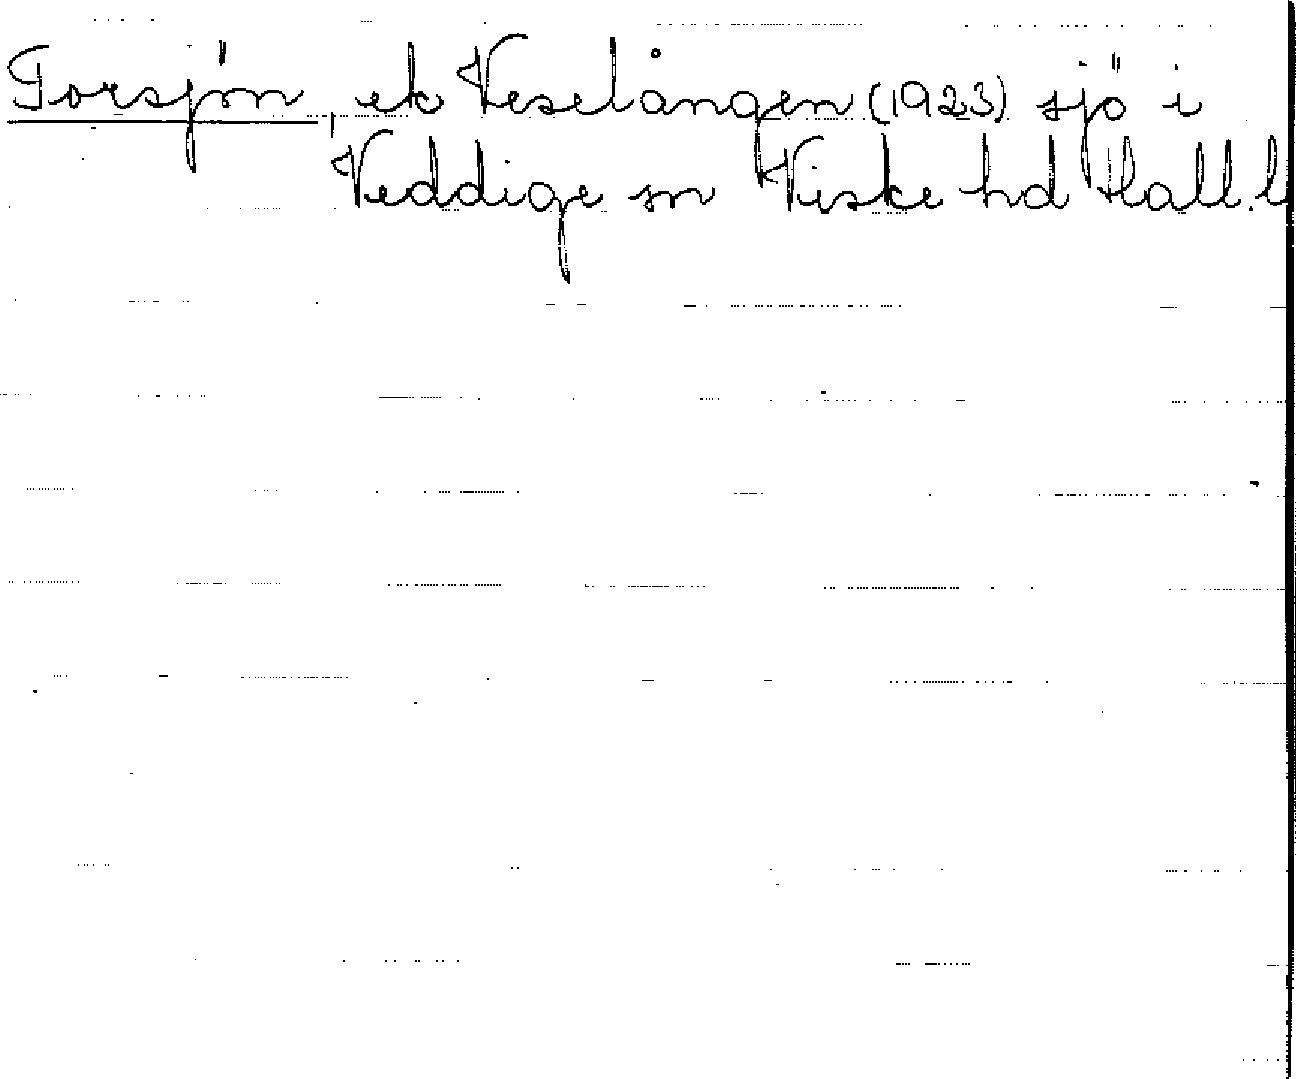 Torsjön, ek Veselången (1923) sjö i
Veddige sn Viske hd Hall.l